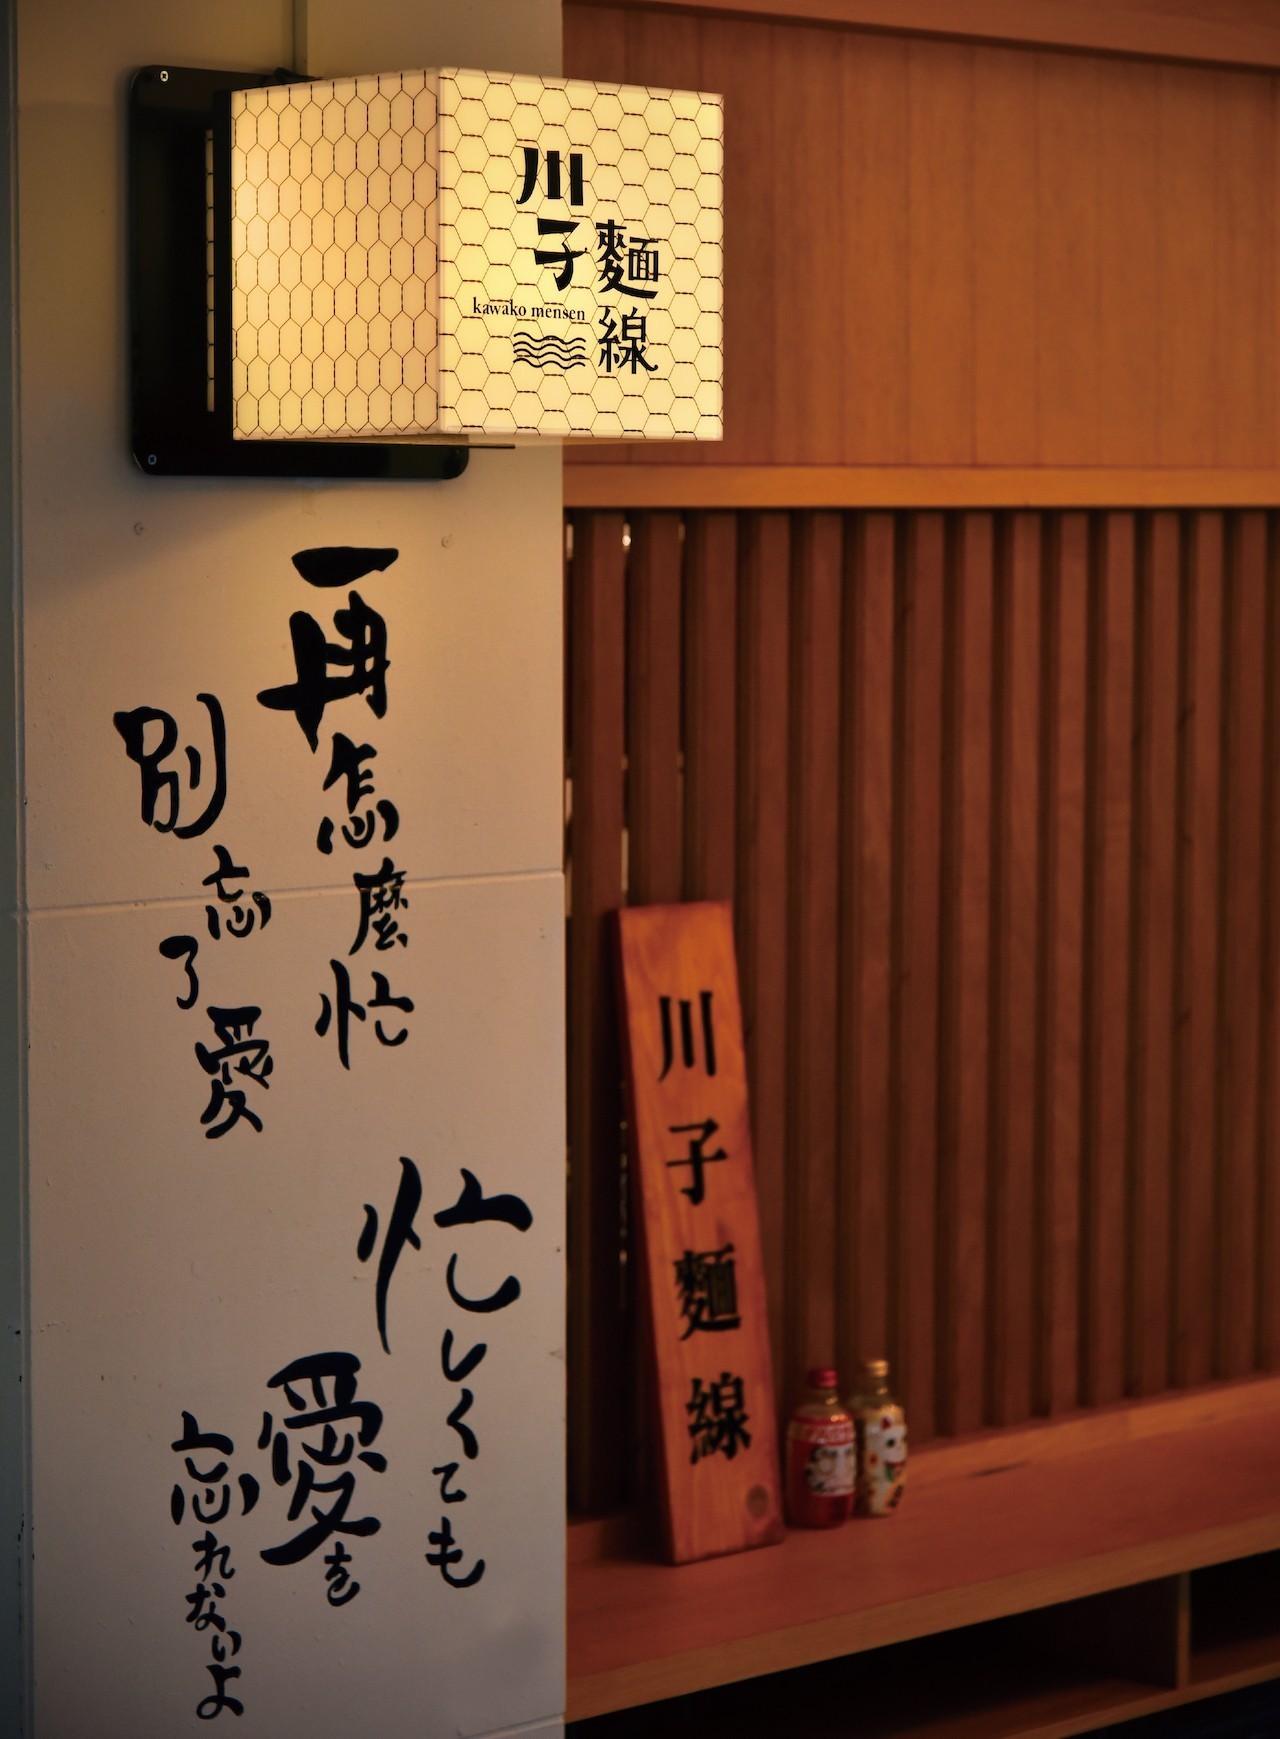 川子
麵線
kawako mensen
再怎麼忙
別忘了愛
忙しくても
愛を
忘れないよ
川子麵線